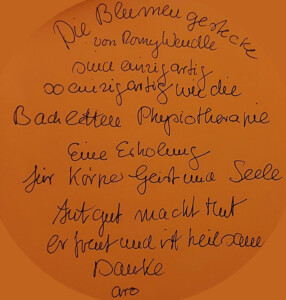 Die Blumengestecke
von Romy Wendle
sind einzigartig
so einzigartig wie die
Bachletten Physiotherapie
Eine Erholung
für Körper Geist und Seele
tut gut macht Mut
erfreut und ist heilsam
Danke